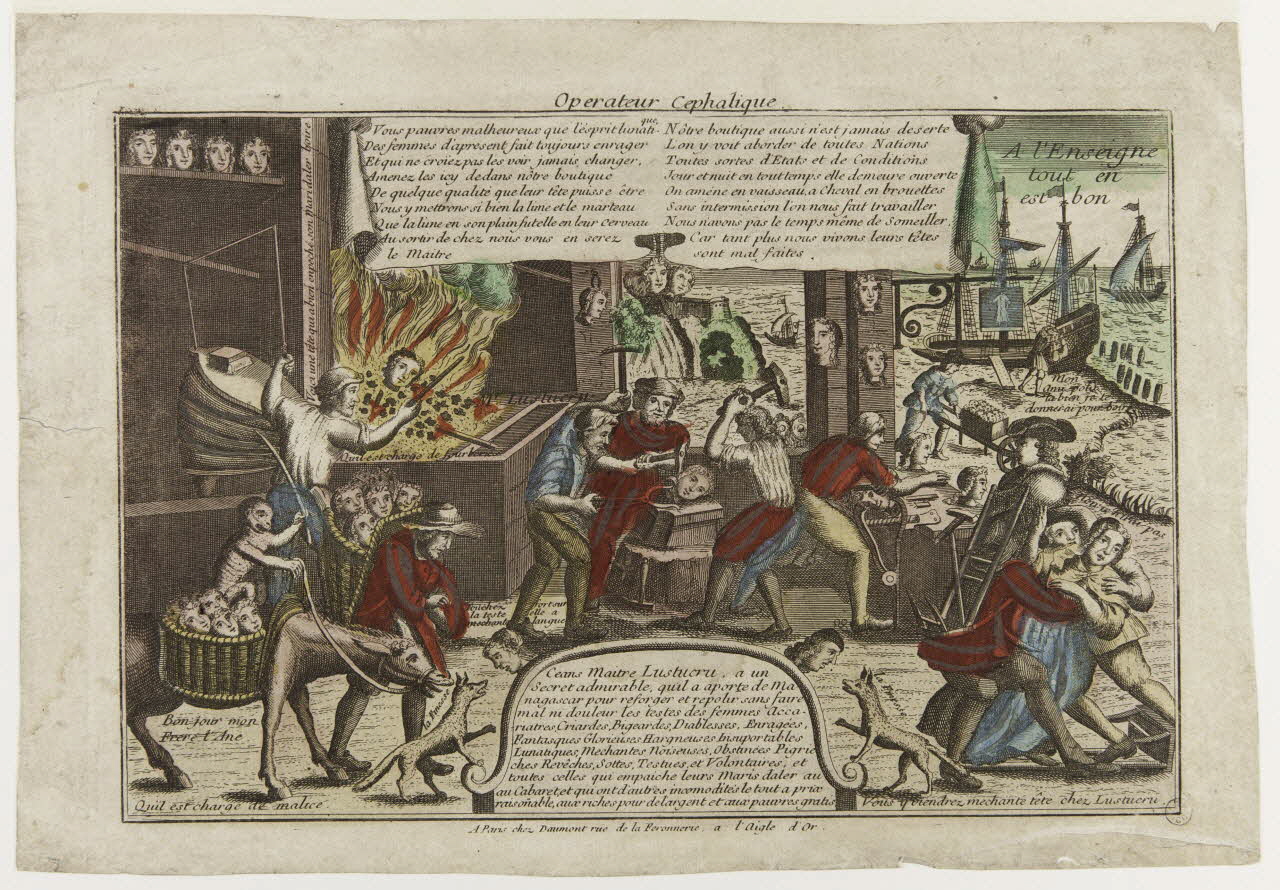 Operateur Cephalique
Vous pauvres malheureux que l'esprit lunatique
Des femmes d'apresent fait toujours enrager
Et qui ne croiez pas les voir jamais changer,
Amenez les icy dedans nôtre boutique
De quelque qualité que leur tête puisse être
Nous y mettrons si bien la lime et le marteau
Que la lune en son plain fut elle en leur cerveau
Au sortir de chez nous vous en serez
le Maitre
Nôtre boutique aussi n'est jamais deserte
L'on y voit aborder de toutes Nations
Toutes sortes d'Etats et de Conditions
Jour et nuit en tout temps elle demeure ouverte
On amène en vaisseau, a Cheval en brouettes
Sans intermission l'on nous fait travailler
Nous navons pas le temps même de Someiller
Car tant plus nous vivons leurs têtes
sont mal faites.
A l'Enseigne
tout en
est bon
Voicy une
qui a bien empeché son Mari daler boire
Lustucru
Mon
donnerai pour boire
Touchez
la teste
Bon-jour mon
Frere l'Ane
Quil est chargé de malice
Ceans Maitre Lustucru, a un
Secret admirable, quil a aporte de Ma
nagascar pour reforger et repolir sans faire
mal ni douleur les testes des femmes Acca
riatres, Criardes, Bigeardes, Diablesses, Enragées,
Fantasques Glorieuses Hargneuses Insuportables
Lunatiques, Mechantes Noiseuses, Obstinées Pigrie
ches Revêches, Sottes, Testues, et Volontaires, et
toutes celles qui empaiche leurs Maris daler au
au Cabaret, et qui ont d'autres incomodités le tout a prix
raisoñable, aux riches pour de largent et aux pauvres gratis
Vous y viendrez mechante tête chez Lustucru
A Paris chez Daumont rue de la Feronnerie, a l'Aigle d'Or.